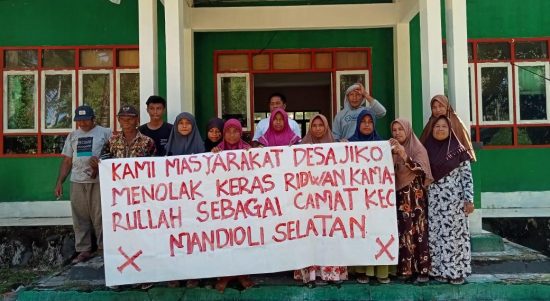 KAMI MASYARAKAT DESA JIKO
MENOLAK KERAS RIDWAN KAMA
RULLAH SEBAGAI CAMAT KEC
MANDIOLI SELATAN
X X